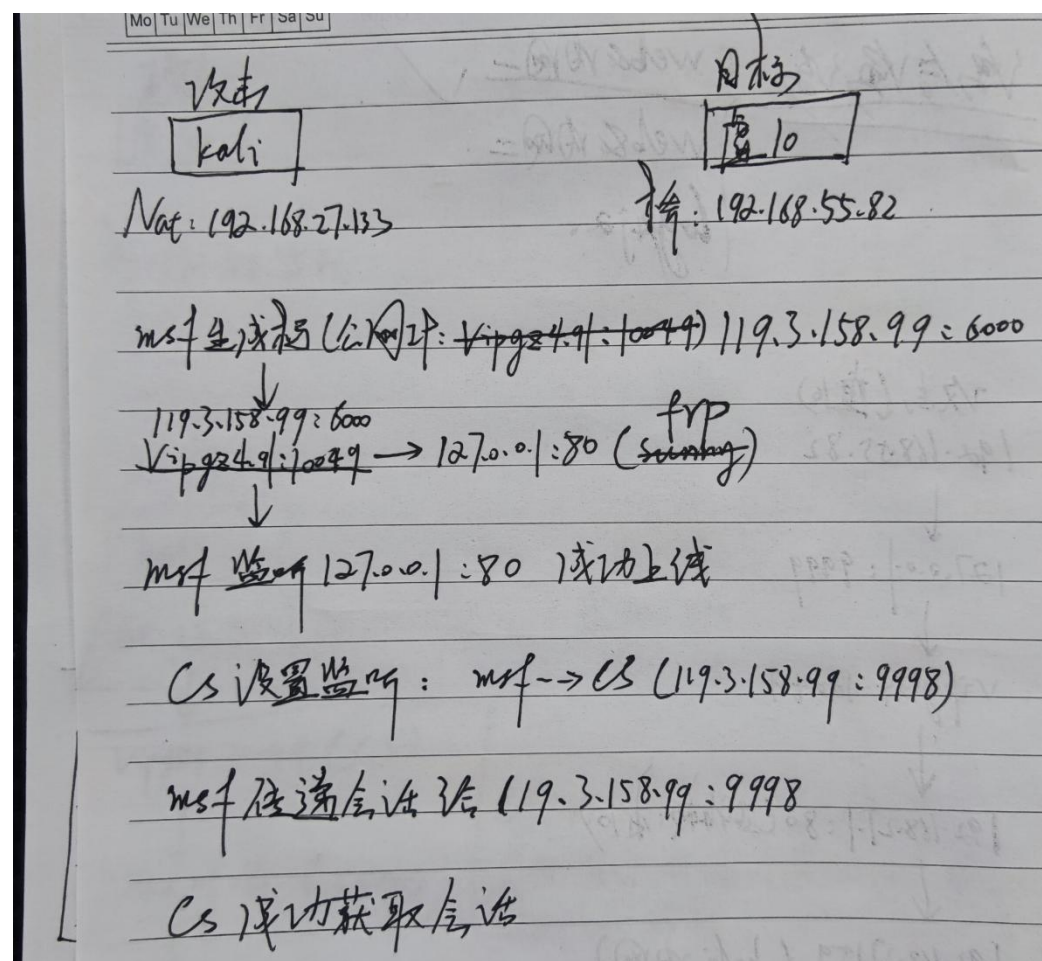 Mo Tu We Th Fr Sa Su
攻击 目标
kali 10
Nat: 192.168.27.133 桥: 192.168.55.82
msf生成码(公网IP: Vipgz4.91:10049) 119.3.158.99:6000
119.3.158.99:6000 frp
Vipgz4.91:10049 → 127.0.0.1:80 (sunny)
msf 监听 127.0.0.1:80 成功上线
CS 设置监听: msf --> CS (119.3.158.99:9998)
msf 传递会话给 119.3.158.99:9998
CS 成功获取会话